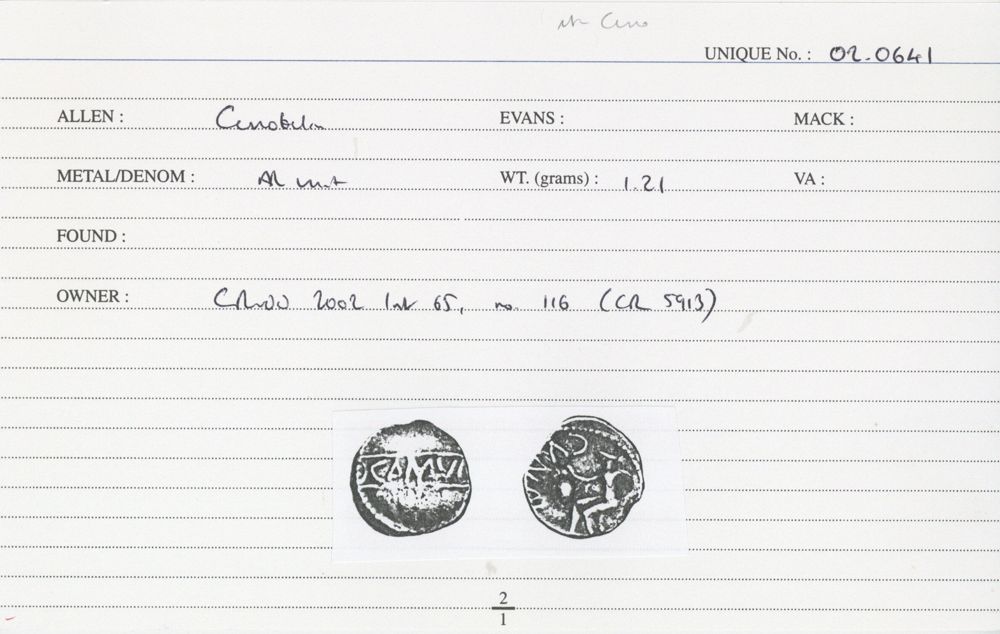 UNIQUE No. : 02.0641
ALLEN : Cunobelin EVANS : MACK :
METAL/DENOM : AR unit WT. (grams) : 1.21 VA :
FOUND :
OWNER : 2002 65, no. 116 (CR 5913)
CAMVL
CVNO
2
1